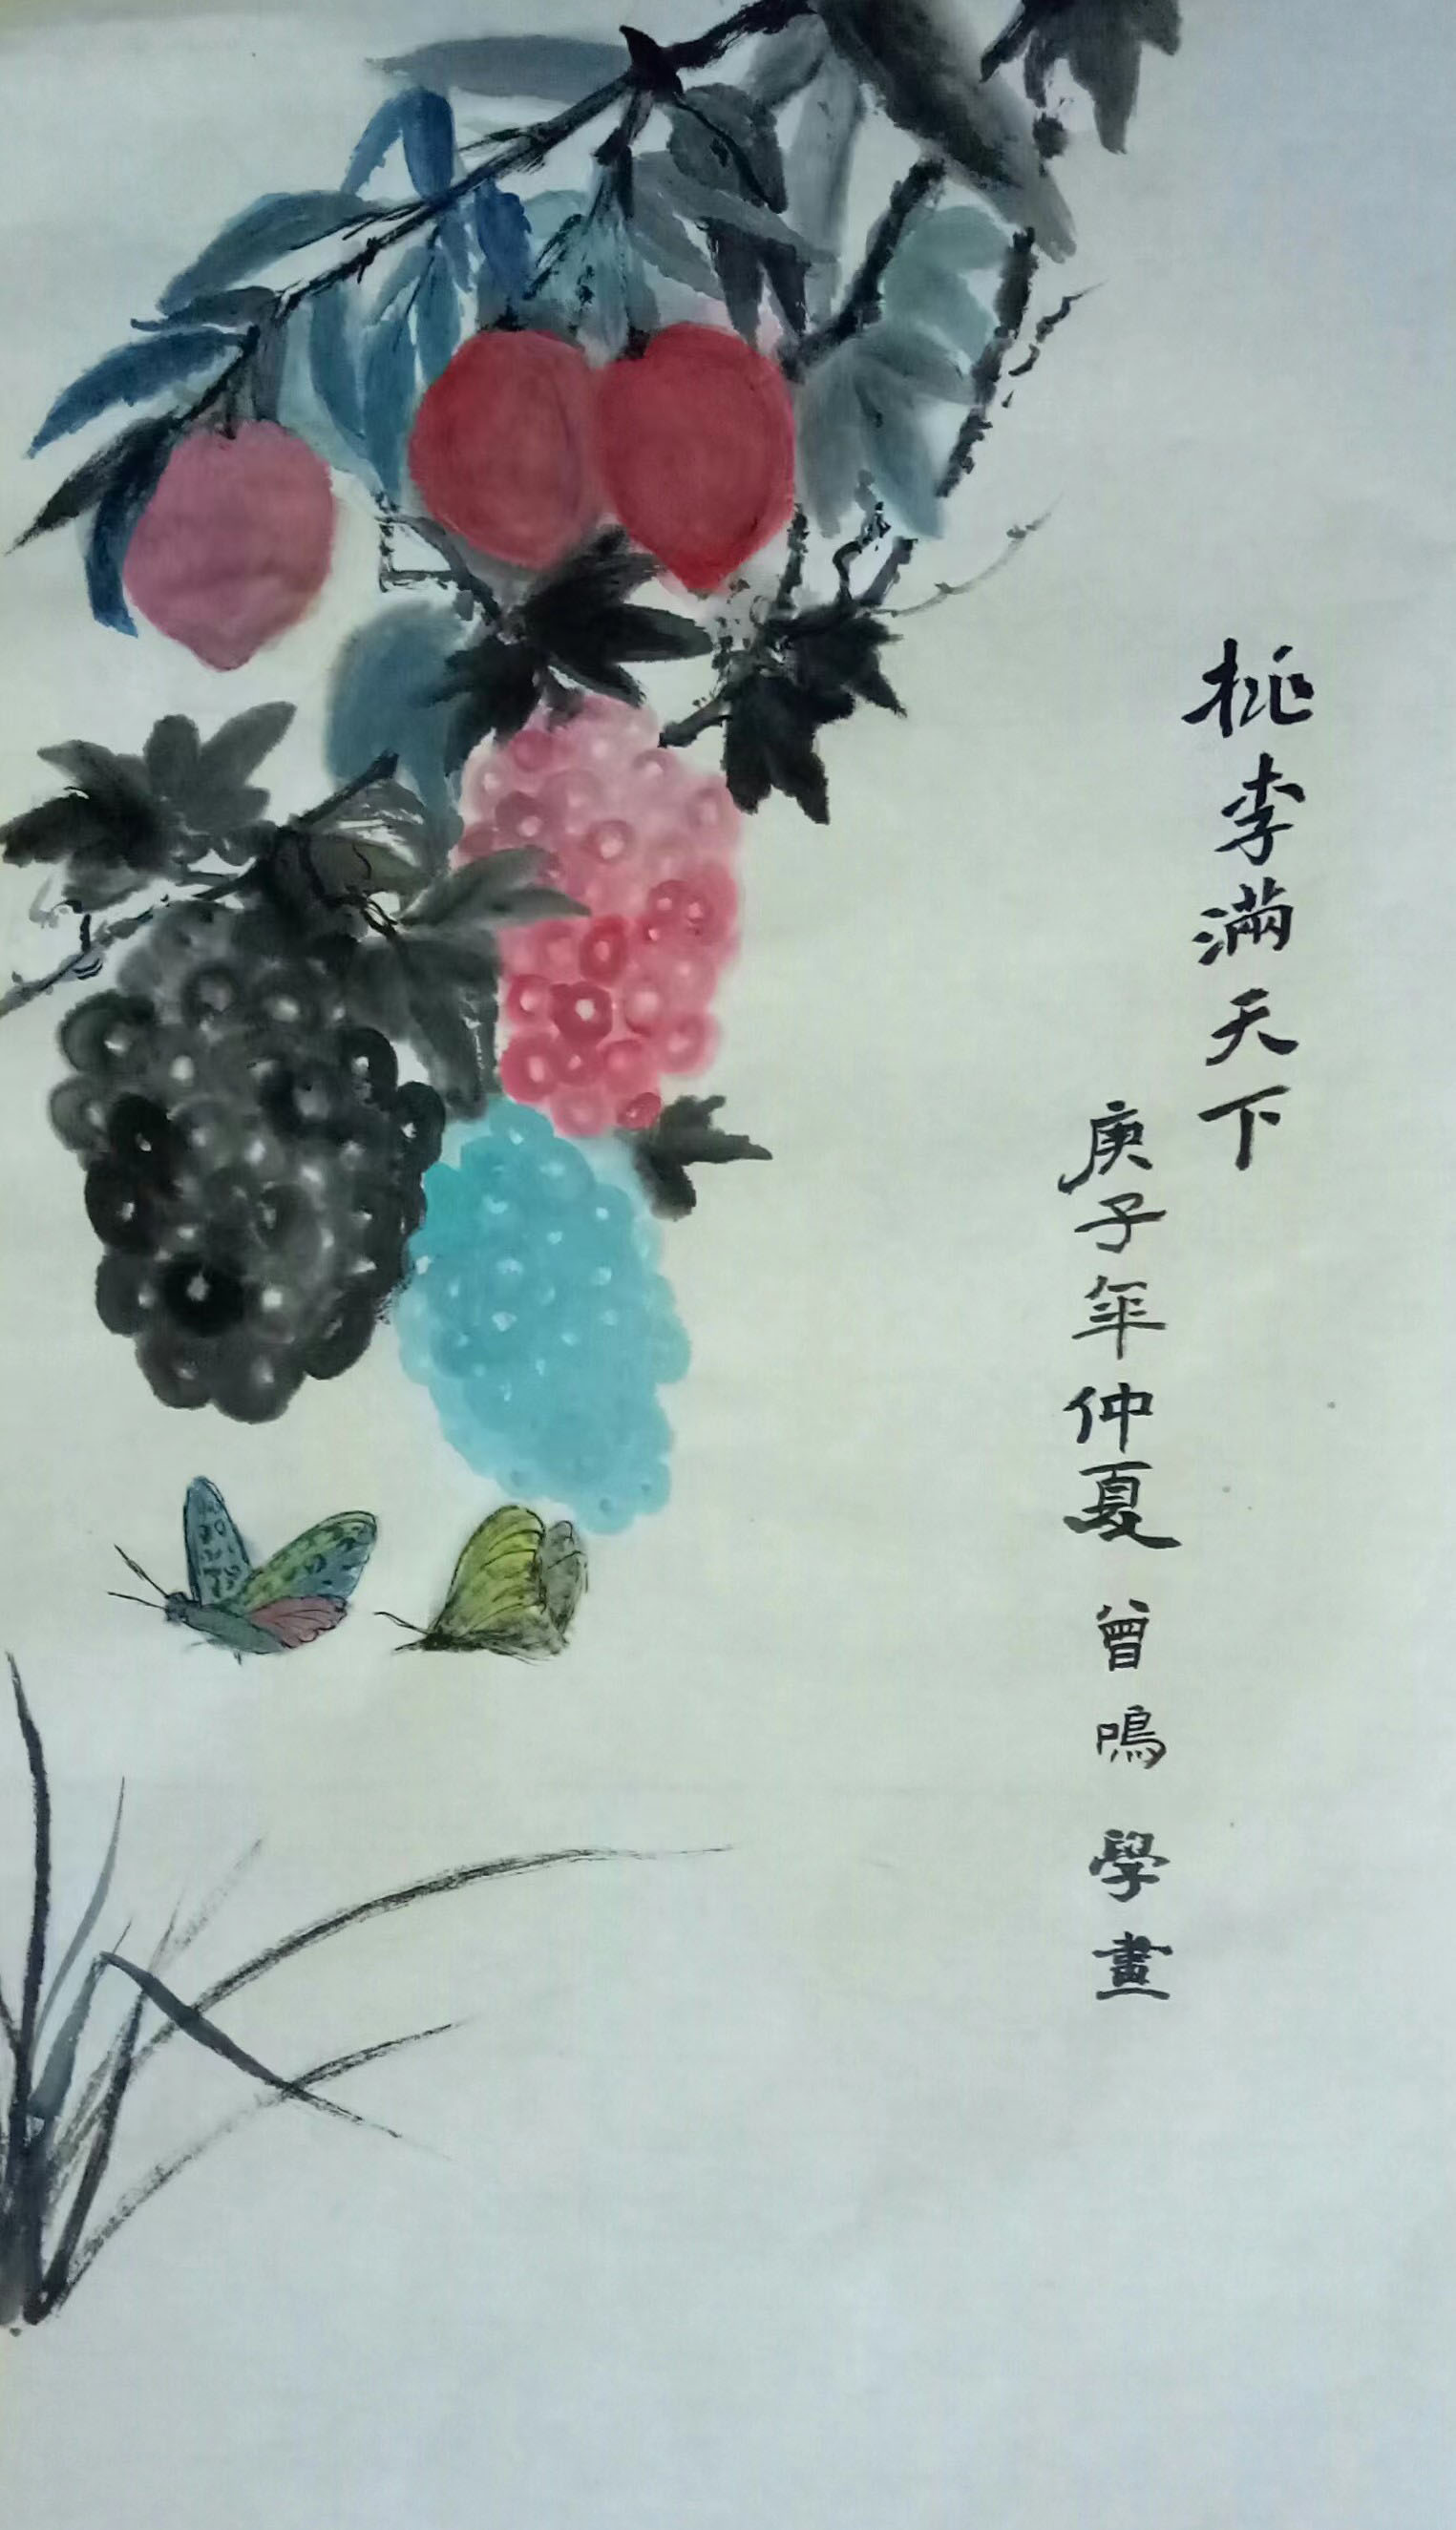 桃李滿天下
庚子年仲夏曾鳴學畫